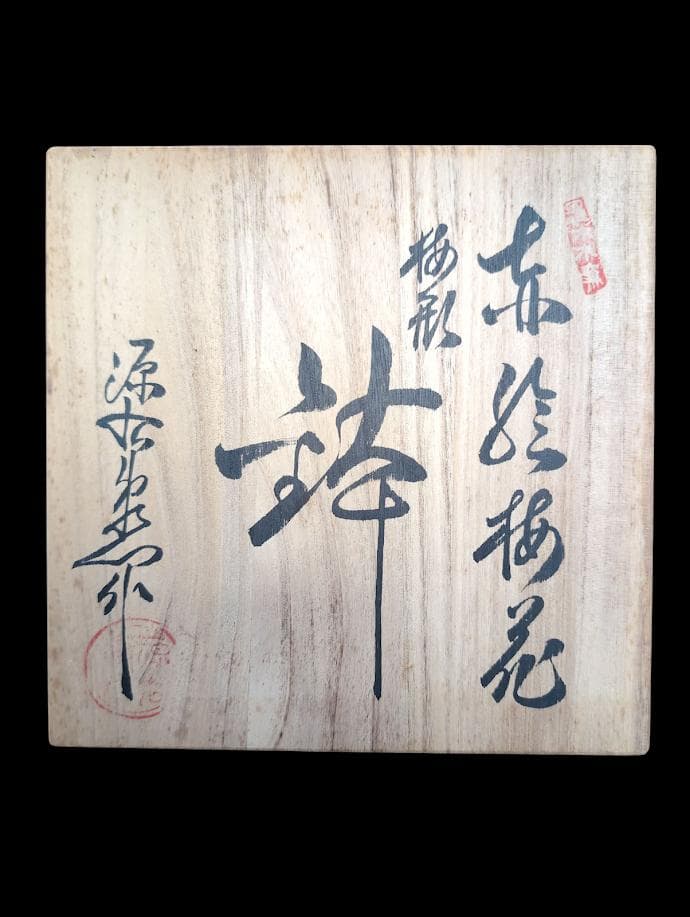 赤絵梅花
梅形
鉢
源右衛門作